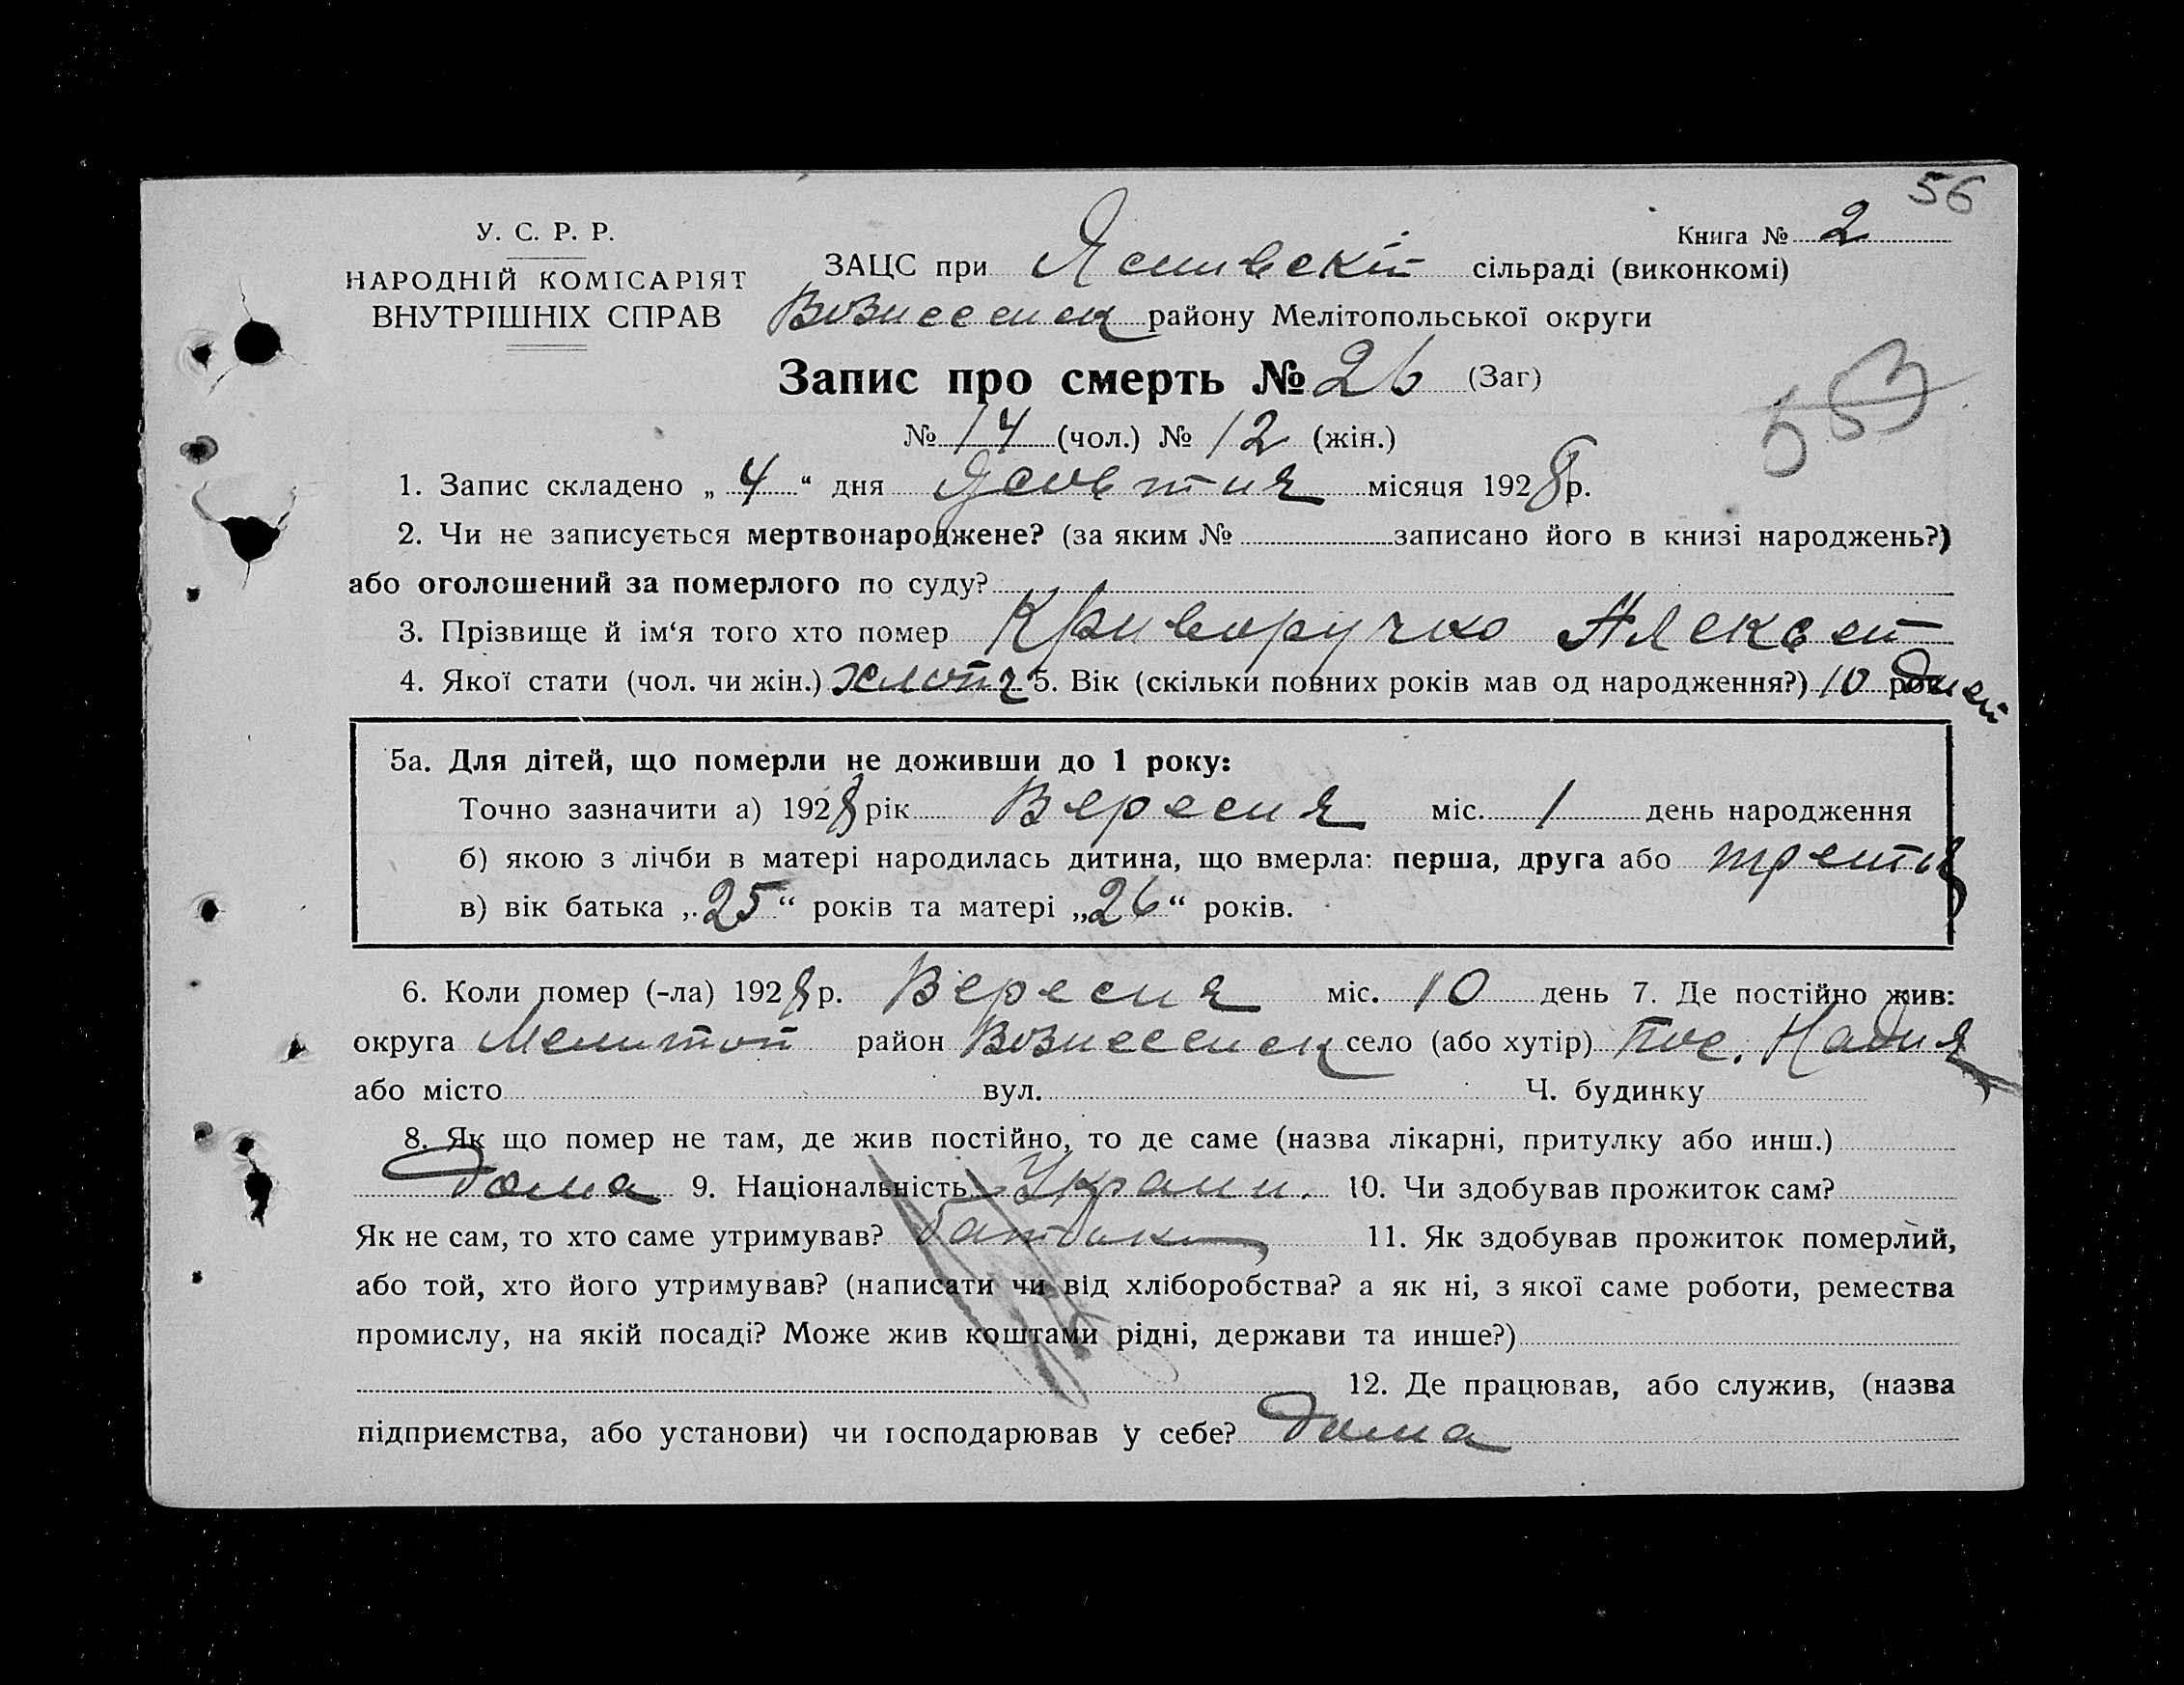 56
У. С. Р. Р.
НАРОДНІЙ КОМІСАРІЯТ
ВНУТРІШНІХ СПРАВ
Книга № 2
ЗАЦС при сільраді (виконкомі)
Вознесенск району Мелітопольської округи
Запис про смерть № 26 (Заг)
553
№ 14 (чол.) № 12 (жін.)
1. Запис складено „ 4 “ дня Жовтня місяця 1928 р.
2. Чи не записується мертвонароджене? (за яким № записано його в книзі народжень?)
або оголошений за померлого по суду?
3. Прізвище й ім‘я того хто помер Криворучко Алексей
4. Якої стати (чол. чи жін.) хлопч 5. Вік (скільки повних років мав од народження?) 10 рок дней
5а. Для дітей, що померли не доживши до 1 року:
Точно зазначити а) 1928 рік Вересня міс. 1 день народження
б) якою з лічби в матері народилась дитина, що вмерла: перша, друга або третья
в) вік батька „ 25 “ років та матері „ 26 “ років.
6. Коли помер (-ла) 1928 р. Вересня міс. 10 день 7. Де постійно жив:
округа Мелитоп район Вознесенск село (або хутір) Пос. Надия
або місто вул. Ч. будинку
8. Як що помер не там, де жив постійно, то де саме (назва лікарні, притулку або инш.)
дома 9. Національність Украин. 10. Чи здобував прожиток сам?
Як не сам, то хто саме утримував? батьки 11. Як здобував прожиток померлий,
або той, хто його утримував? (написати чи від хліборобства? а як ні, з якої саме роботи, ремества
промислу, на якій посаді? Може жив коштами рідні, держави та инше?)
12. Де працював, або служив, (назва
підприємства, або установи) чи господарював у себе? дома